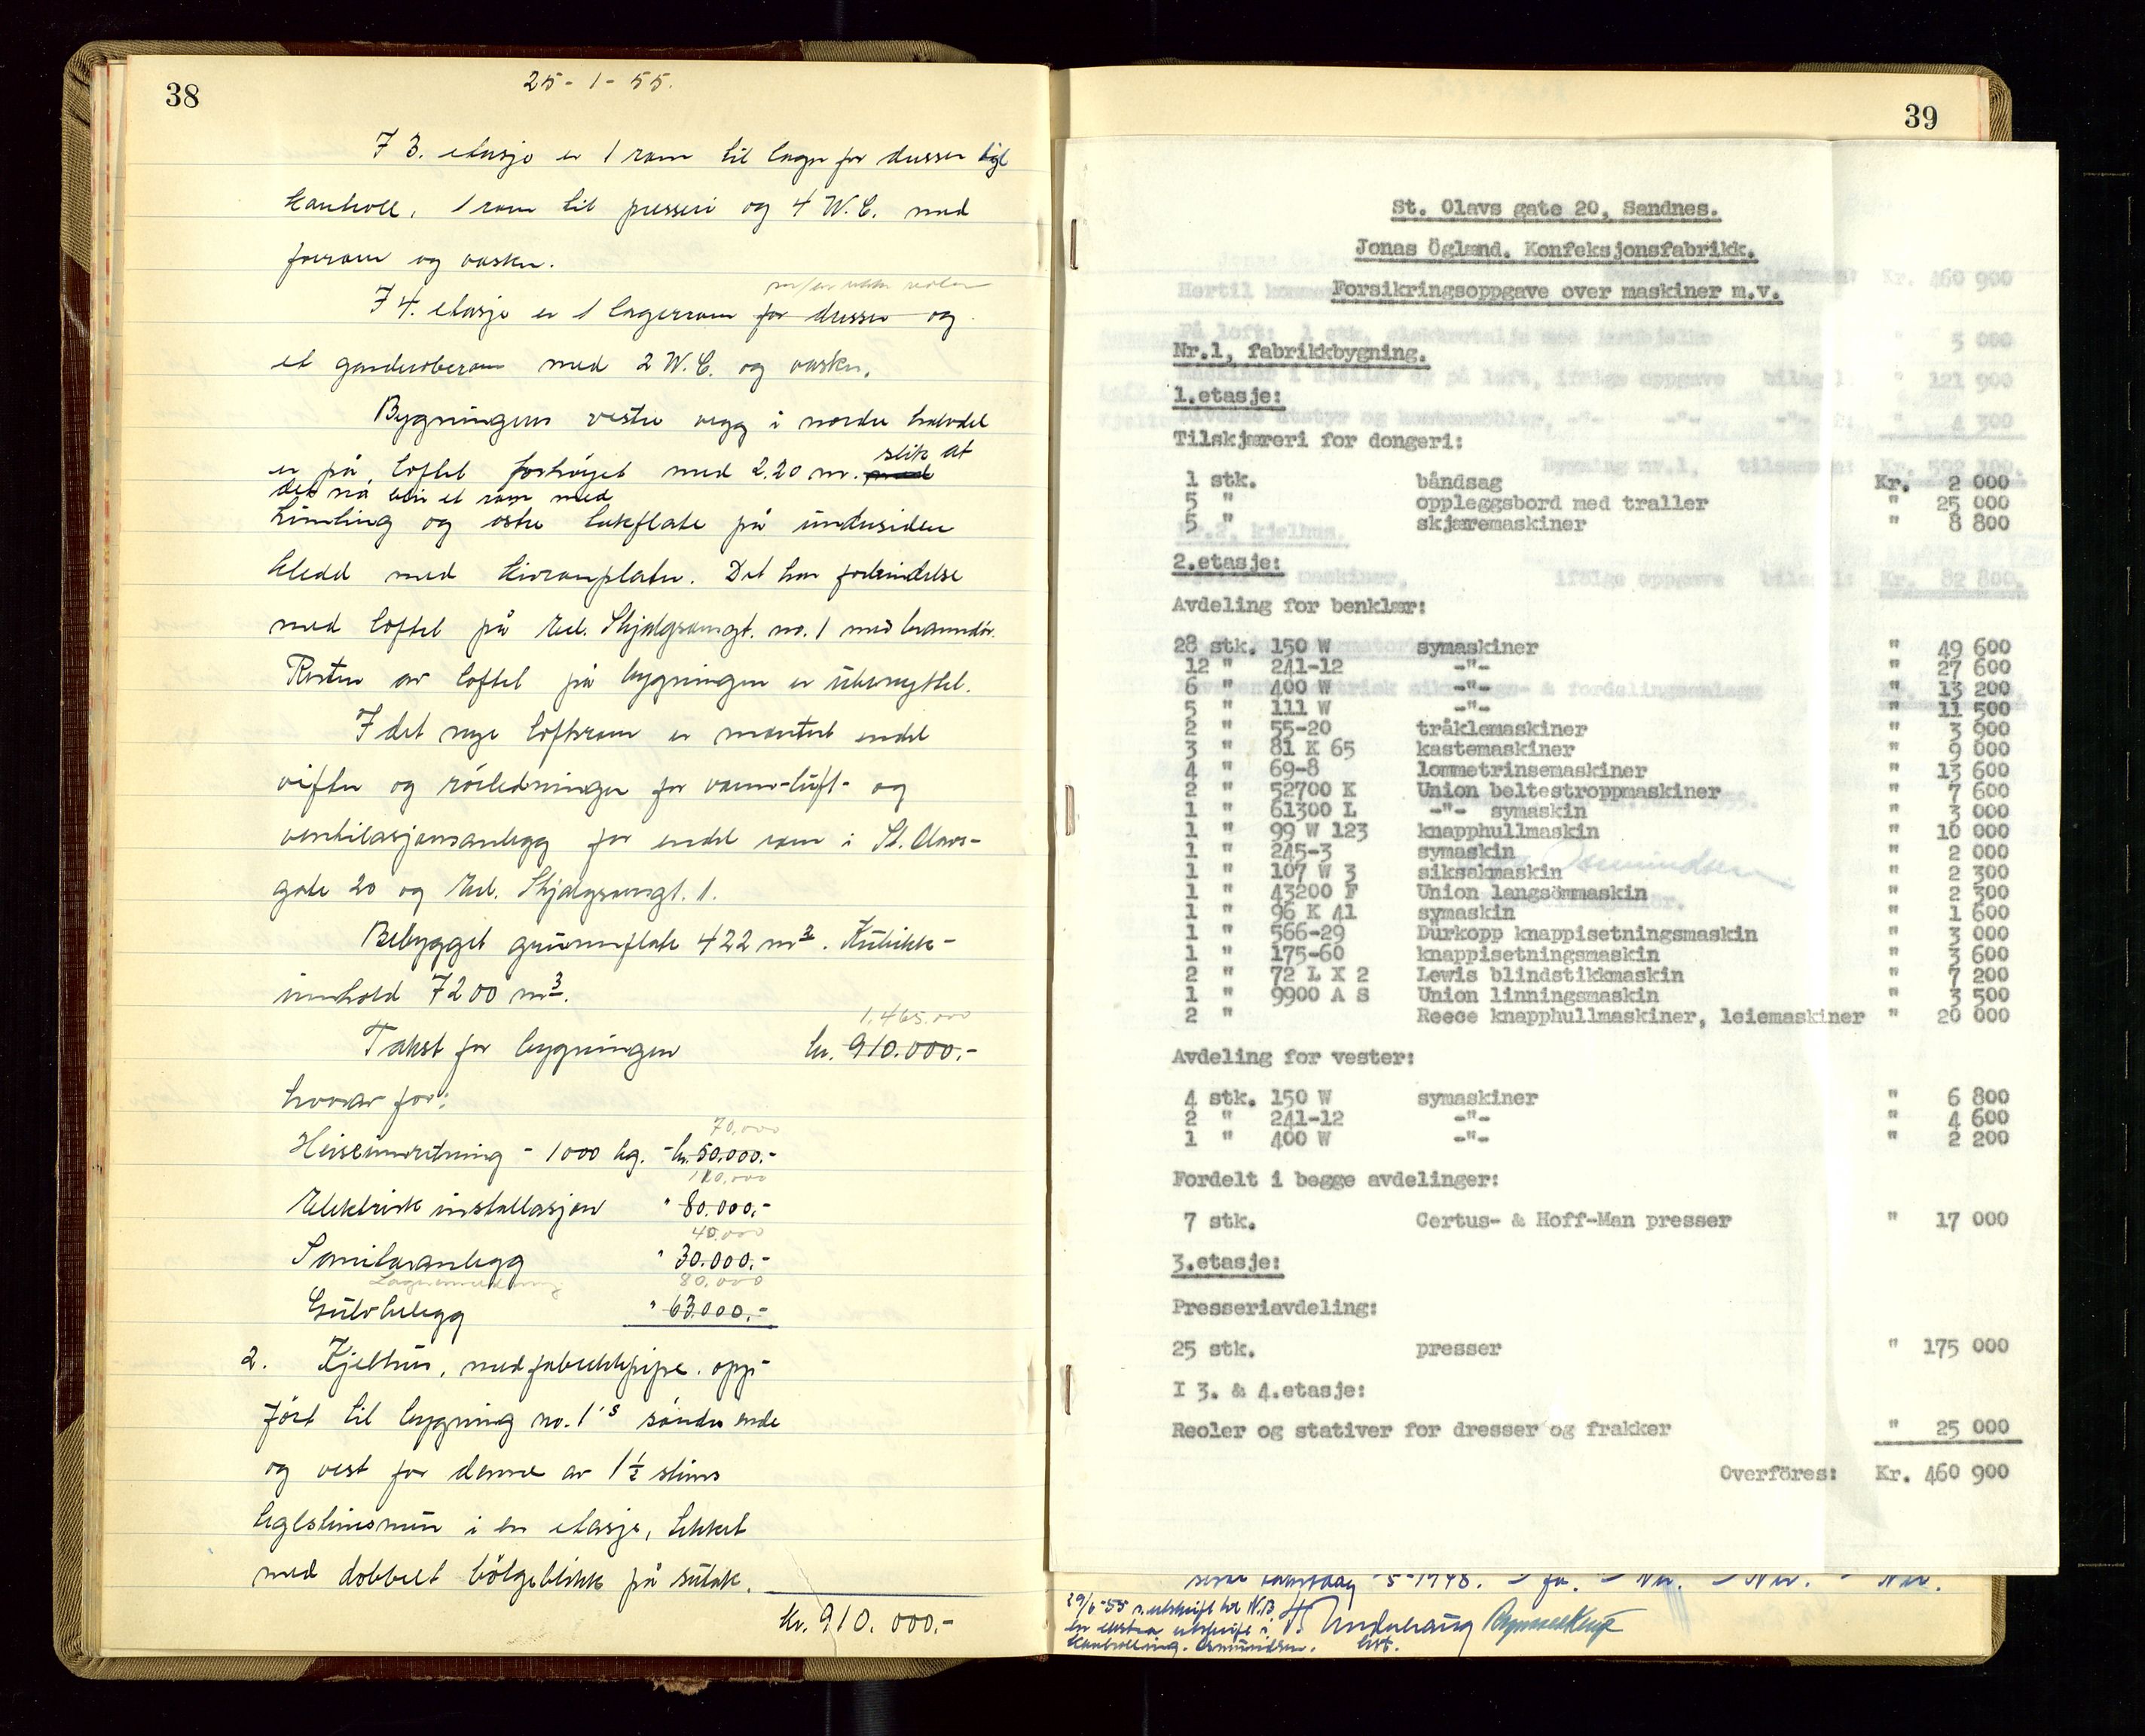 38
25-1-55.
I 3. etasje er 1 rom til lager for dresser tigl
kontroll, 1 rom til presseri og 4 W.C. med
forrom og vasker.
I 4. etasje er 1 lagerrom for dresser og
et garderoberom med 2 W.C. og vasker.
Bygningens vestre vegg i nordre halvdel
er på loftet forhöyet med 2.20 m. med slik at
det nå blir et rom med
himling og östre takflate på undersiden
kledd med plater. Det har forbindelse
med loftet på Erl. Skjalgsonsgt. no. 1 med branndör.
Resten av loftet på bygningen er ubenyttet.
I det nye loftsrom er montert endel
vifter og rörledninger for varm-luft- og
ventilasjonsanlegg for endel rom i St. Olavs-
gate 20 og Erl. Skjalgsonsgt. 1.
Bebygget grunnflate 422 m2. Kubikk-
innhold 7200 m3.
1.465.000
Takst for bygningen kr. 910.000.-
hvorav for:
70.000
Heisinnretning - 1000 kg. - kr. 50.000.-
Elektrisk installasjon " 80.000.-
40.000
Sanitæranlegg " 30.000.-
80.000
Gulvbelegg " 63.000.-
2. Kjelhus, med fabrikkpipe. opp-
fört til bygning no. 1's söndre ende
og vest for denne av 1½ stens
teglstensmur i en etasje, tekket
med dobbelt bölgeblikk på sutak.
kr. 910.000.-
39
St. Olavs gate 20, Sandnes.
Jonas Öglænd. Konfeksjonsfabrikk.
Forsikringsoppgave over maskiner m.v.
Nr.1, fabrikkbygning.
1.etasje:
Tilskjæreri for dongeri:
1 stk. båndsag Kr. 2 000
5 " oppleggsbord med traller " 25 000
5 " skjæremaskiner " 8 800
2.etasje:
Avdeling for benklær:
28 stk. 150 W symaskiner " 49 600
12 " 241-12 -"- " 27 600
6 " 400 W -"- " 13 200
5 " 111 W -"- " 11 500
2 " 55-20 tråklemaskiner " 3 900
3 " 81 K 65 kastemaskiner " 9 000
4 " 69-8 lommetrinsemaskiner " 13 600
2 " 52700 K Union beltestroppmaskiner " 7 600
1 " 61300 L -"- symaskin " 3 000
1 " 99 W 123 knapphullmaskin " 10 000
1 " 245-3 symaskin " 2 000
1 " 107 W 3 siksakmaskin " 2 300
1 " 43200 F Union langsömmaskin " 2 300
1 " 96 K 41 symaskin " 1 600
1 " 566-29 Dürkopp knappisetningsmaskin " 3 000
1 " 175-60 knappisetningsmaskin " 3 600
2 " 72 L X 2 Lewis blindstikkmaskin " 7 200
1 " 9900 A S Union linningsmaskin " 3 500
2 " Reece knapphullmaskiner, leiemaskiner " 20 000
Avdeling for vester:
4 stk. 150 W symaskiner " 6 800
2 " 241-12 -"- " 4 600
1 " 400 W -"- " 2 200
Fordelt i begge avdelinger:
7 stk. Certus- & Hoff-Man presser " 17 000
3.etasje:
Presseriavdeling:
25 stk. presser " 175 000
I 3. & 4.etasje:
Reoler og stativer for dresser og frakker " 25 000
Overföres: Kr. 460 900
5-1948.
29/6-55 n. utskrift til N.B.
en ekstra utskrift i